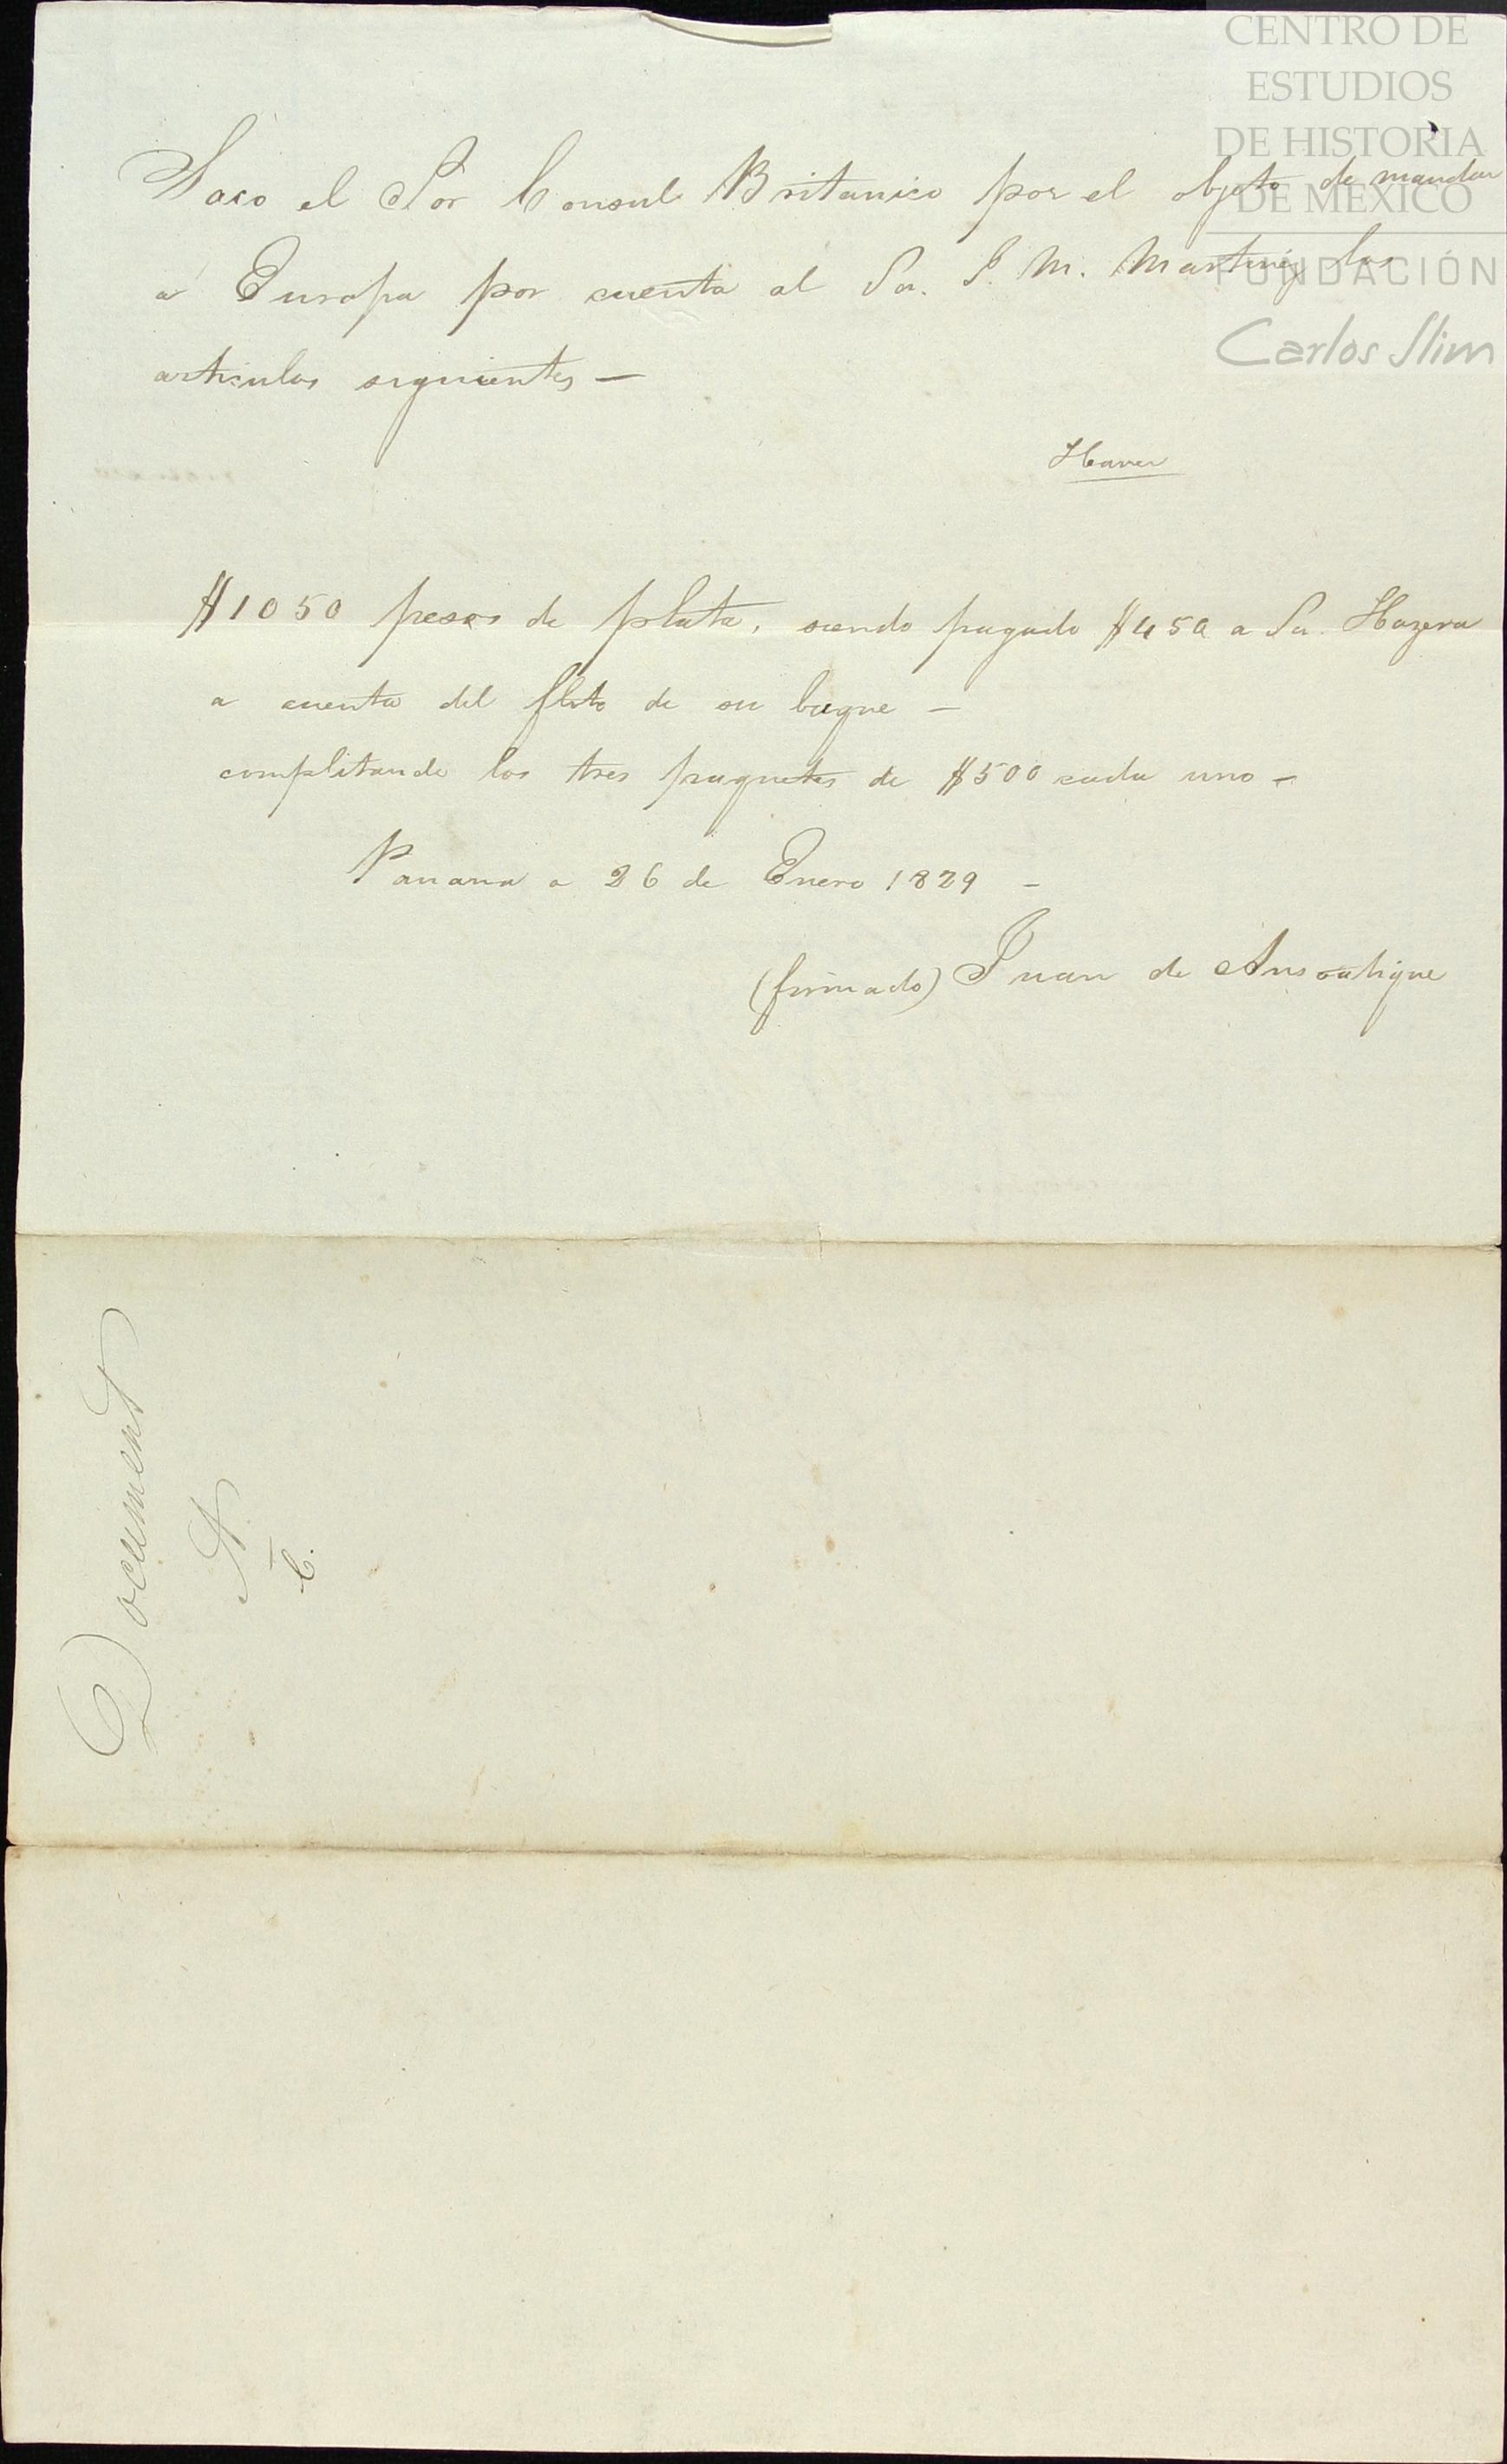 Saco el Sor Consul Britanico por el objeto de mandar
a Europa por cuenta al Sr. J. M. Martinez los
articulos siguientes —
Haver
$1050 pesos de plata, siendo pagado $450 a Sr. Hazera
a cuenta del flete de su buque —
complitando los tres paquetes de $500 cada uno —
Panama a 26 de Enero 1829 —
(firmado) Juan de Ansoatigue
Document
A.
C.
CENTRO DE
ESTUDIOS
DE HISTORIA
DE MEXICO
FUNDACIÓN
Carlos Slim